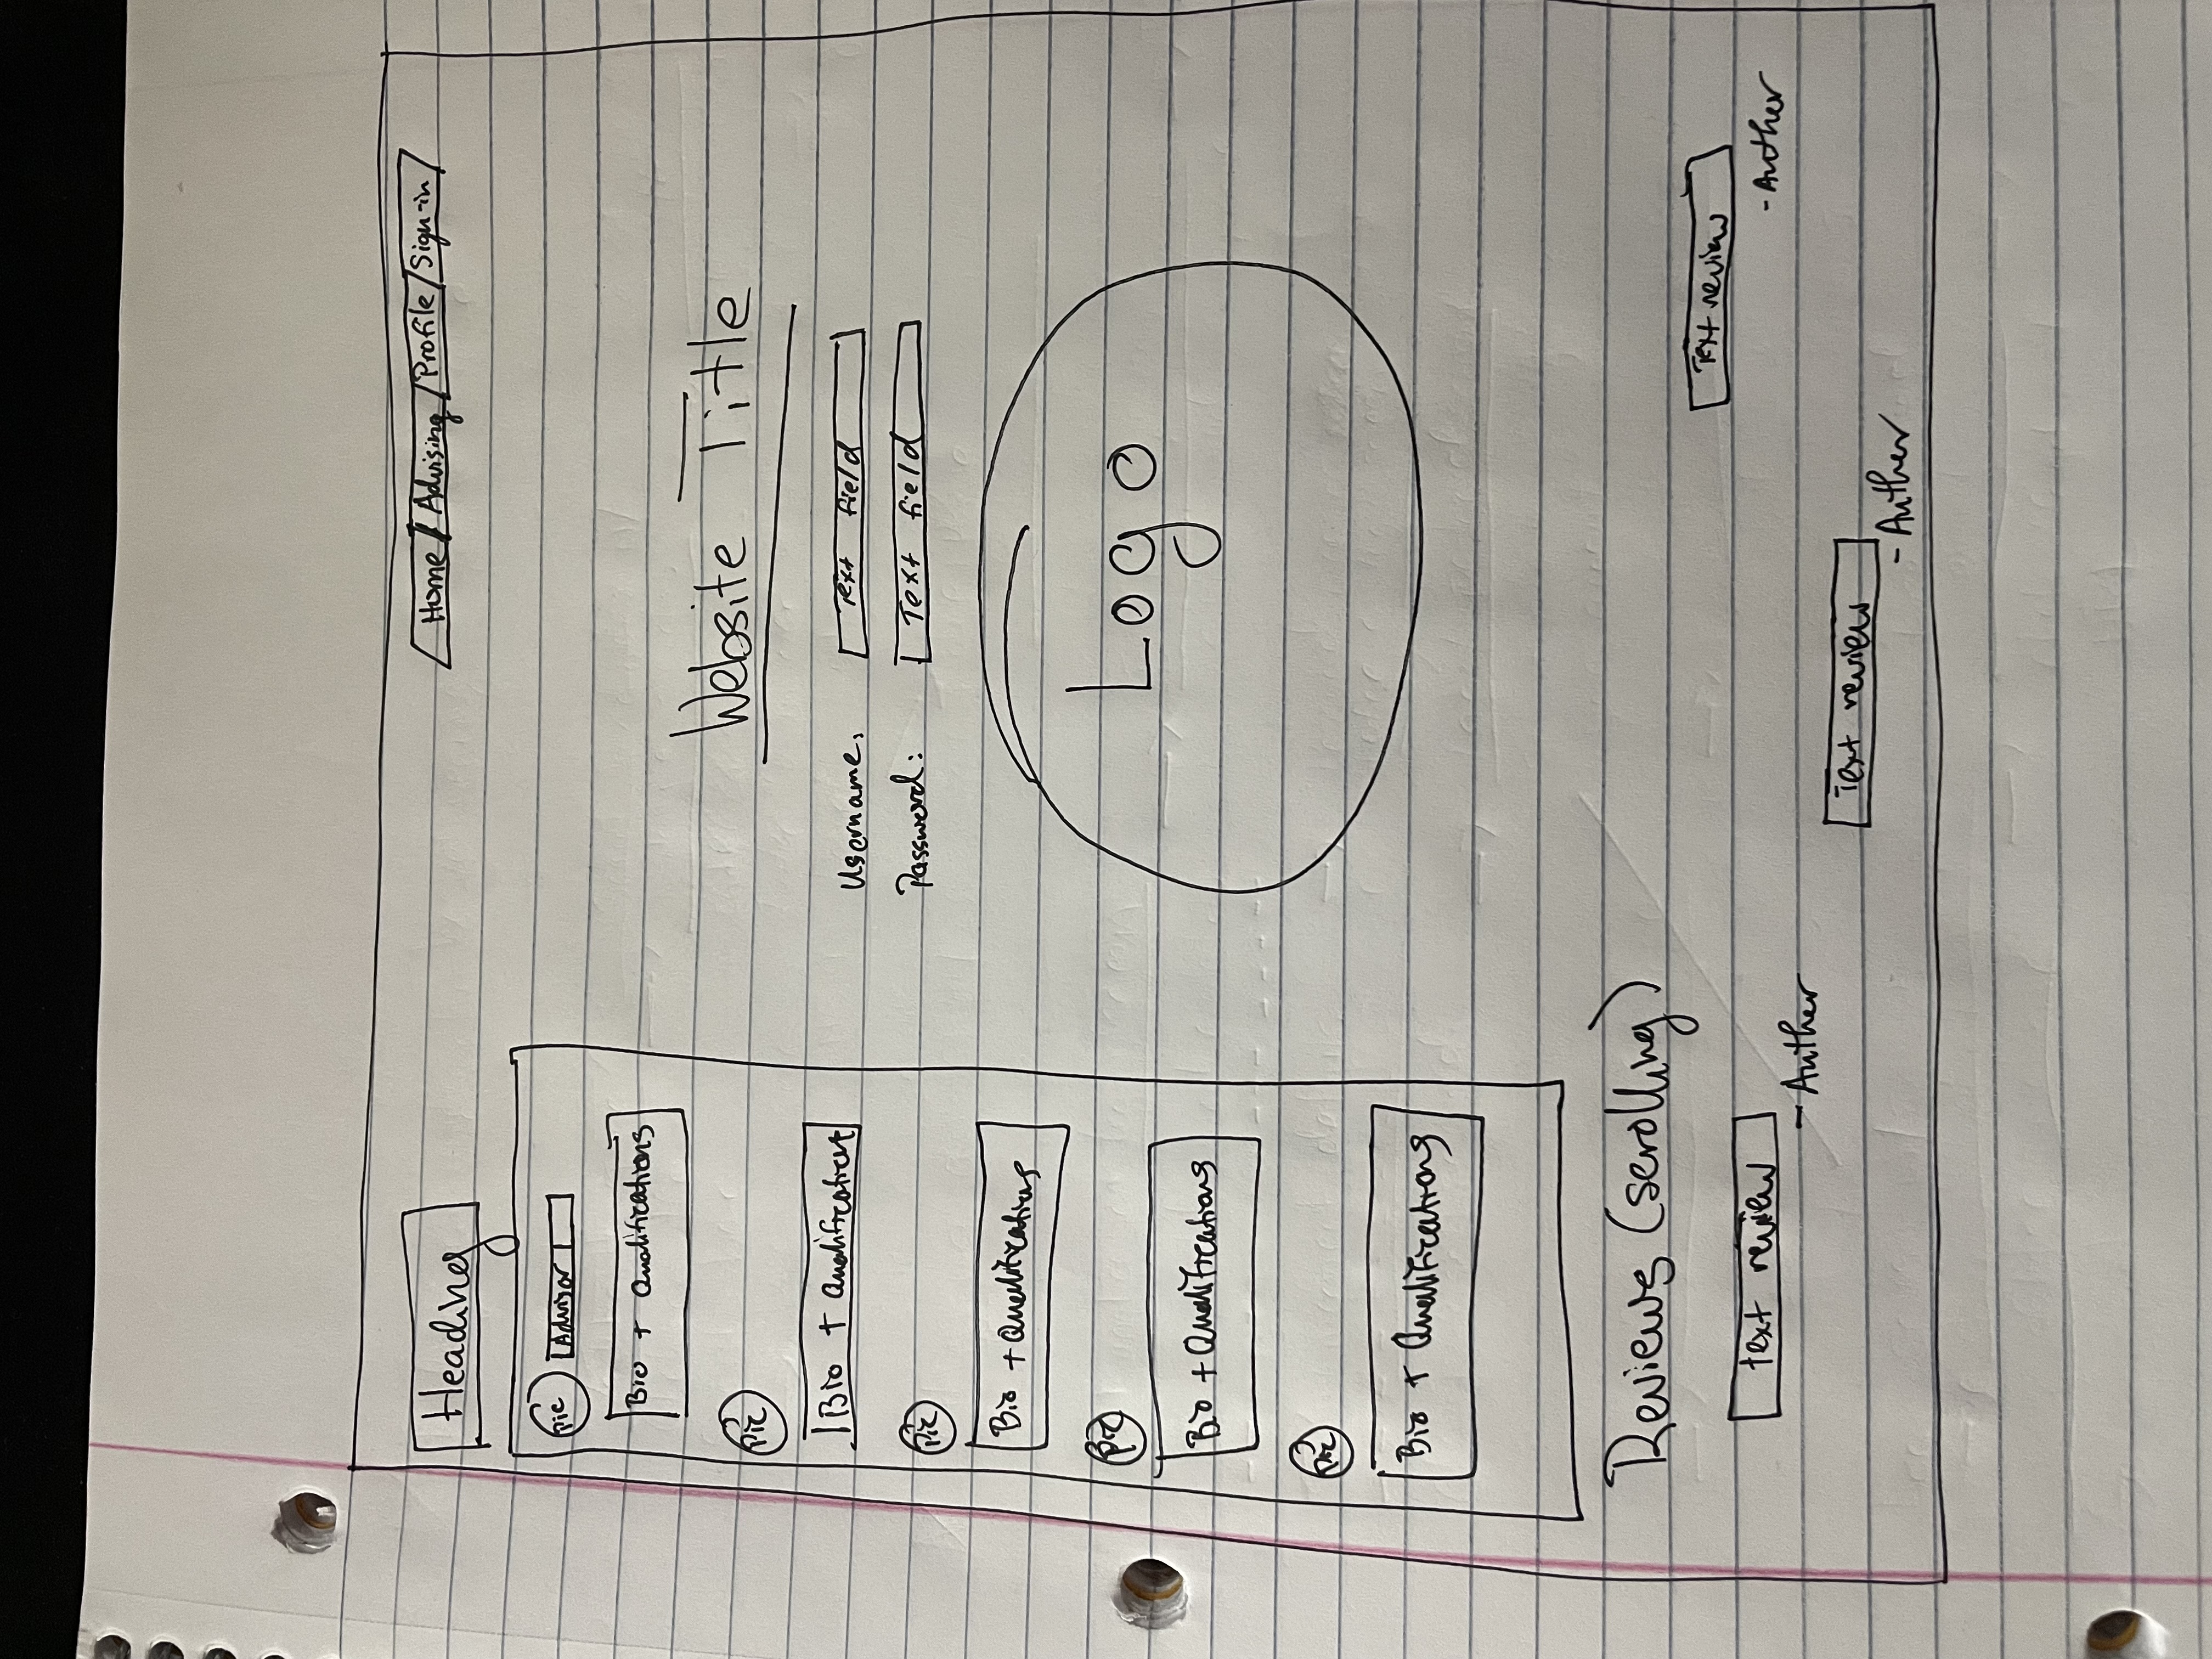 Heading
Home / Advising / Profile / Sign-in
Pic Advisor
Bio + Qualifications
Pic
Bio + Qualifications
Pic
Bio + Qualifications
Pic
Bio + Qualifications
Pic
Bio + Qualifications
Website Title
Username: Text field
Password: Text field
Logo
Reviews (scrolling)
Text review
- Auther
text review
- Auther
Text review
- Auther